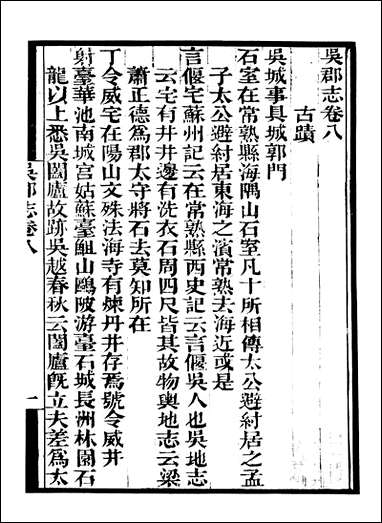 吳郡志卷八
古蹟
吳城事具城郭門
石室在常熟縣海隅山石室凡十所相傳太公避紂居之孟
子太公避紂居東海之濱常熟去海近或是
言偃宅蘇州記云在常熟縣西史記云言偃吳人也吳地志
云宅有井井邊有洗衣石周四尺皆其故物輿地志云梁
蕭正德為郡太守將石去莫知所在
丁令威宅在陽山文殊法海寺有煉丹井存焉號令威井
射臺華池南城宮姑蘇臺䱉山鷗陂游臺石城長洲林園石
龍以上悉吳闔廬故跡吳越春秋云闔廬旣立夫差為太
吳郡志卷八
一